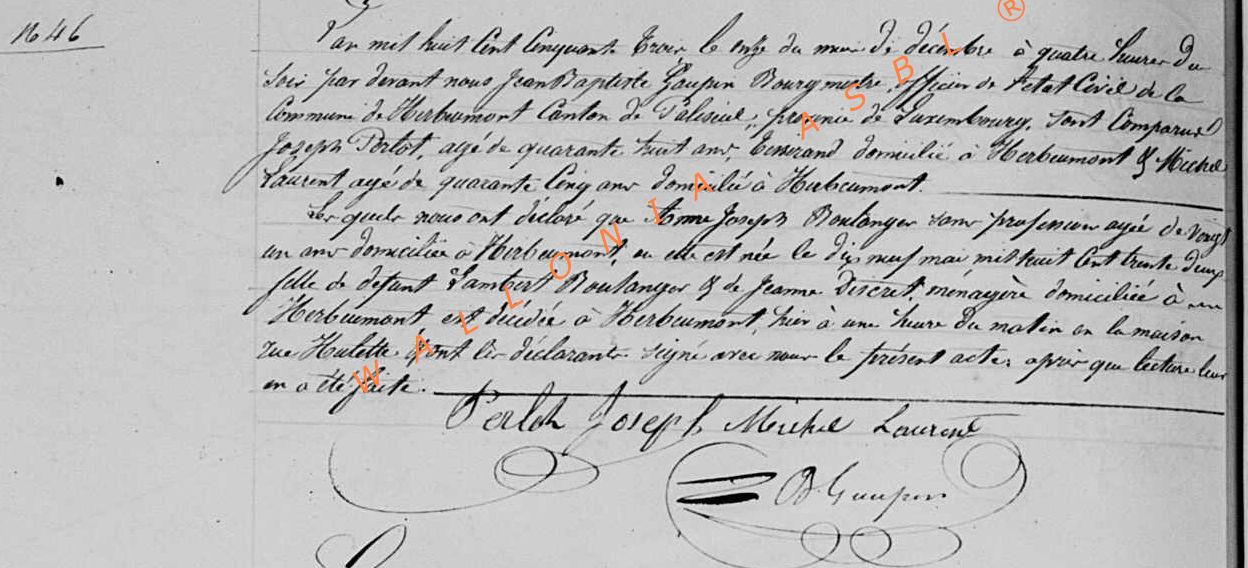 N 46
L'an mil huit Cent Cinquante trois le onze du mois de décembre à quatre heures du
soir par devant nous Jean Baptiste Gaupin Bourgmestre, officier de l'etat Civil de la
Commune de Herbeumont Canton de Paliseul, province de Luxembourg, sont Comparus
Joseph Perlot, agé de quarante huit ans, Tisserand domicilié à Herbeumont & Michel
Laurent agé de quarante Cinq ans domicilié à Herbeumont.
Les quels nous ont déclaré que Anne Joseph Boulanger sans profession agée de vingt
un ans domiciliée à Herbeumont, ou elle est née le dix neuf mai mil huit Cent trente deux
fille de defunt Lambert Boulanger & de Jeanne Discret, ménagère domiciliée à
Herbeumont est décédée à Herbeumont, hier à une heure du matin en la maison
rue Hulette. Et ont les déclarants signé avec nous le présent acte, après que lecture leur
en a été faite.
Perlot Joseph Michel Laurent
JB Gaupin
WALLONIA ASBL ®